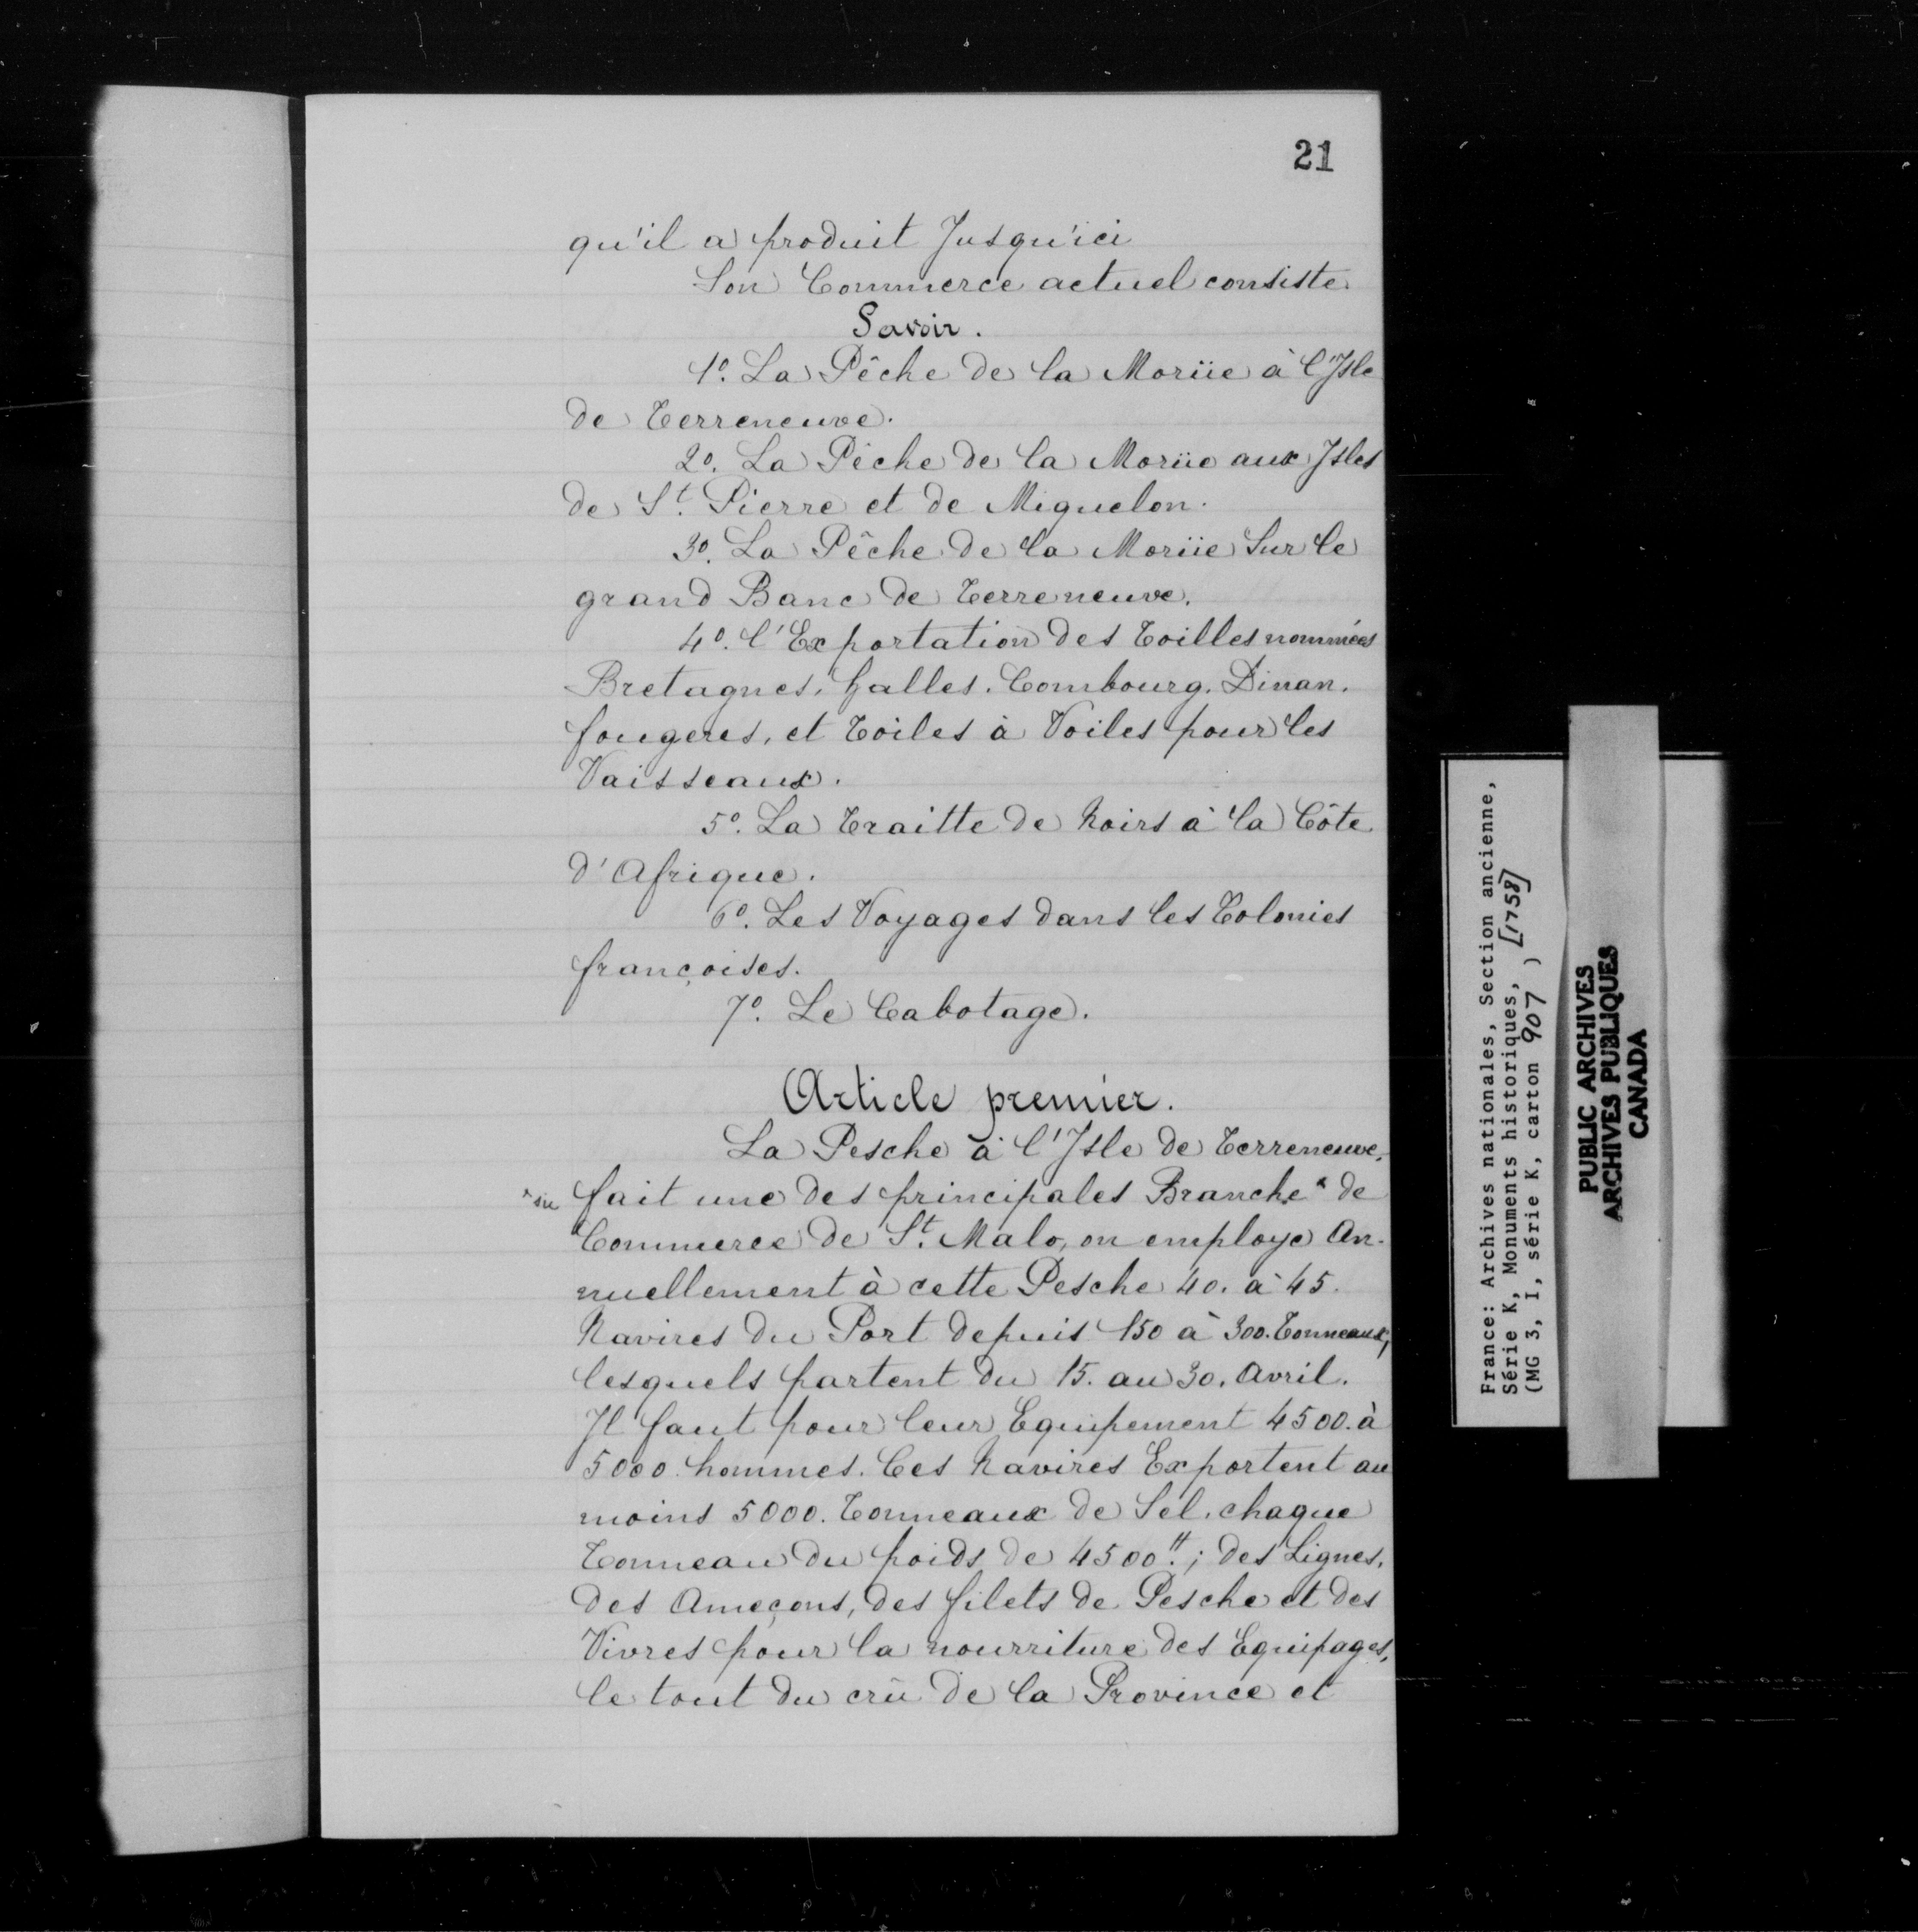 21
qu'il a produit Jusqu'ici
Son Commerce actuel consiste
Savoir.
1º. La Pêche de la Morüe à l'Isle
de Terreneuve.
2º. La Pêche de la Morüe aux Isles
de St. Pierre et de Miquelon.
3º. La Pêche de la Morüe Sur le
grand Banc de Terreneuve.
4º. l'Exportation des Toilles nommées
Bretagnes, halles. Combourg. Dinan.
fougeres, et Toiles à Voiles pour les
Vaisseaux.
5º. La Traitte de Noirs à la Côte
d'Afrique.
6º. Les Voyages dans les Colonies
françoises.
7º. Le Cabotage.
Article premier.
La Pesche à l'Isle de Terreneuve,
fait une des principales Branche x de
Commerce de St. Malo, on employe An-
nuellement à cette Pesche 40. à 45.
Navires du Port depuis 150 à 300. Tonneaux,
lesquels partent du 15. au 30. Avril.
Il faut pour leur Equipement 4500. à
5000. hommes. Ces Navires Exportent au
moins 5000. Tonneaux de Sel, chaque
Tonneau du poids de 4500.tt; des Lignes,
des Ameçons, des filets de Pesche et des
Vivres pour la nourriture des Equipages,
le tout du crû de la Province et
France: Archives nationales, Section ancienne,
Série K, Monuments historiques,
(MG 3, I, série K, carton 907 ) [1758]
PUBLIC ARCHIVES
ARCHIVES PUBLIQUES
CANADA